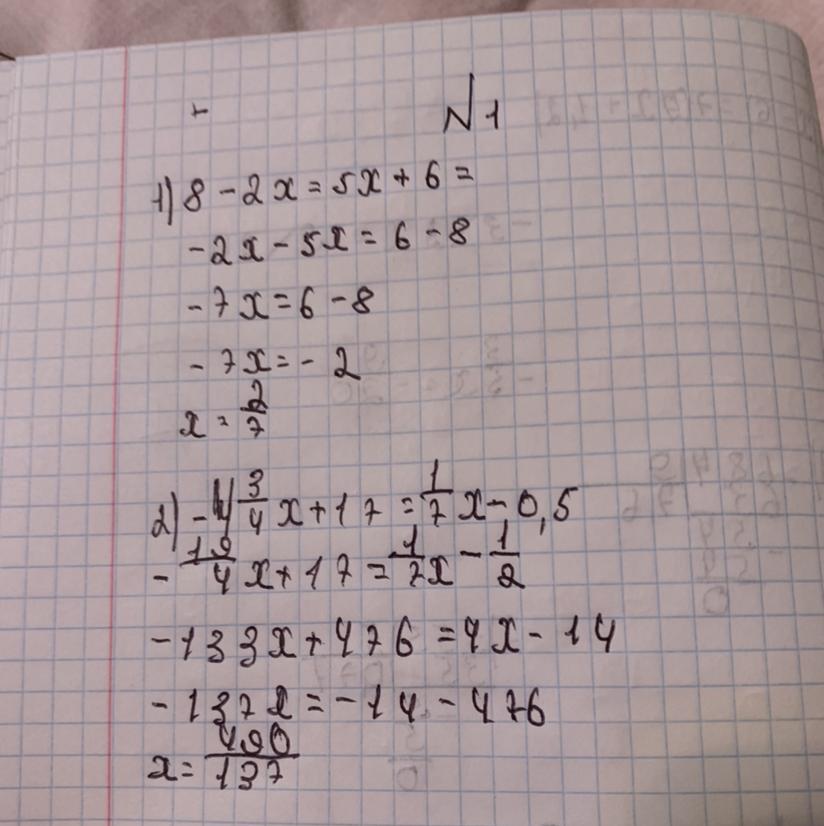 N1
1) 8 - 2x = 5x + 6 =
-2x - 5x = 6 - 8
-7x = 6 - 8
-7x = -2
x = 2/7
2) -4 3/4 x + 17 = 1/7 x - 0,5
- 19/4 x + 17 = 1/7 x - 1/2
-133x + 476 = 4x - 14
-137x = -14 - 476
x = 490/137